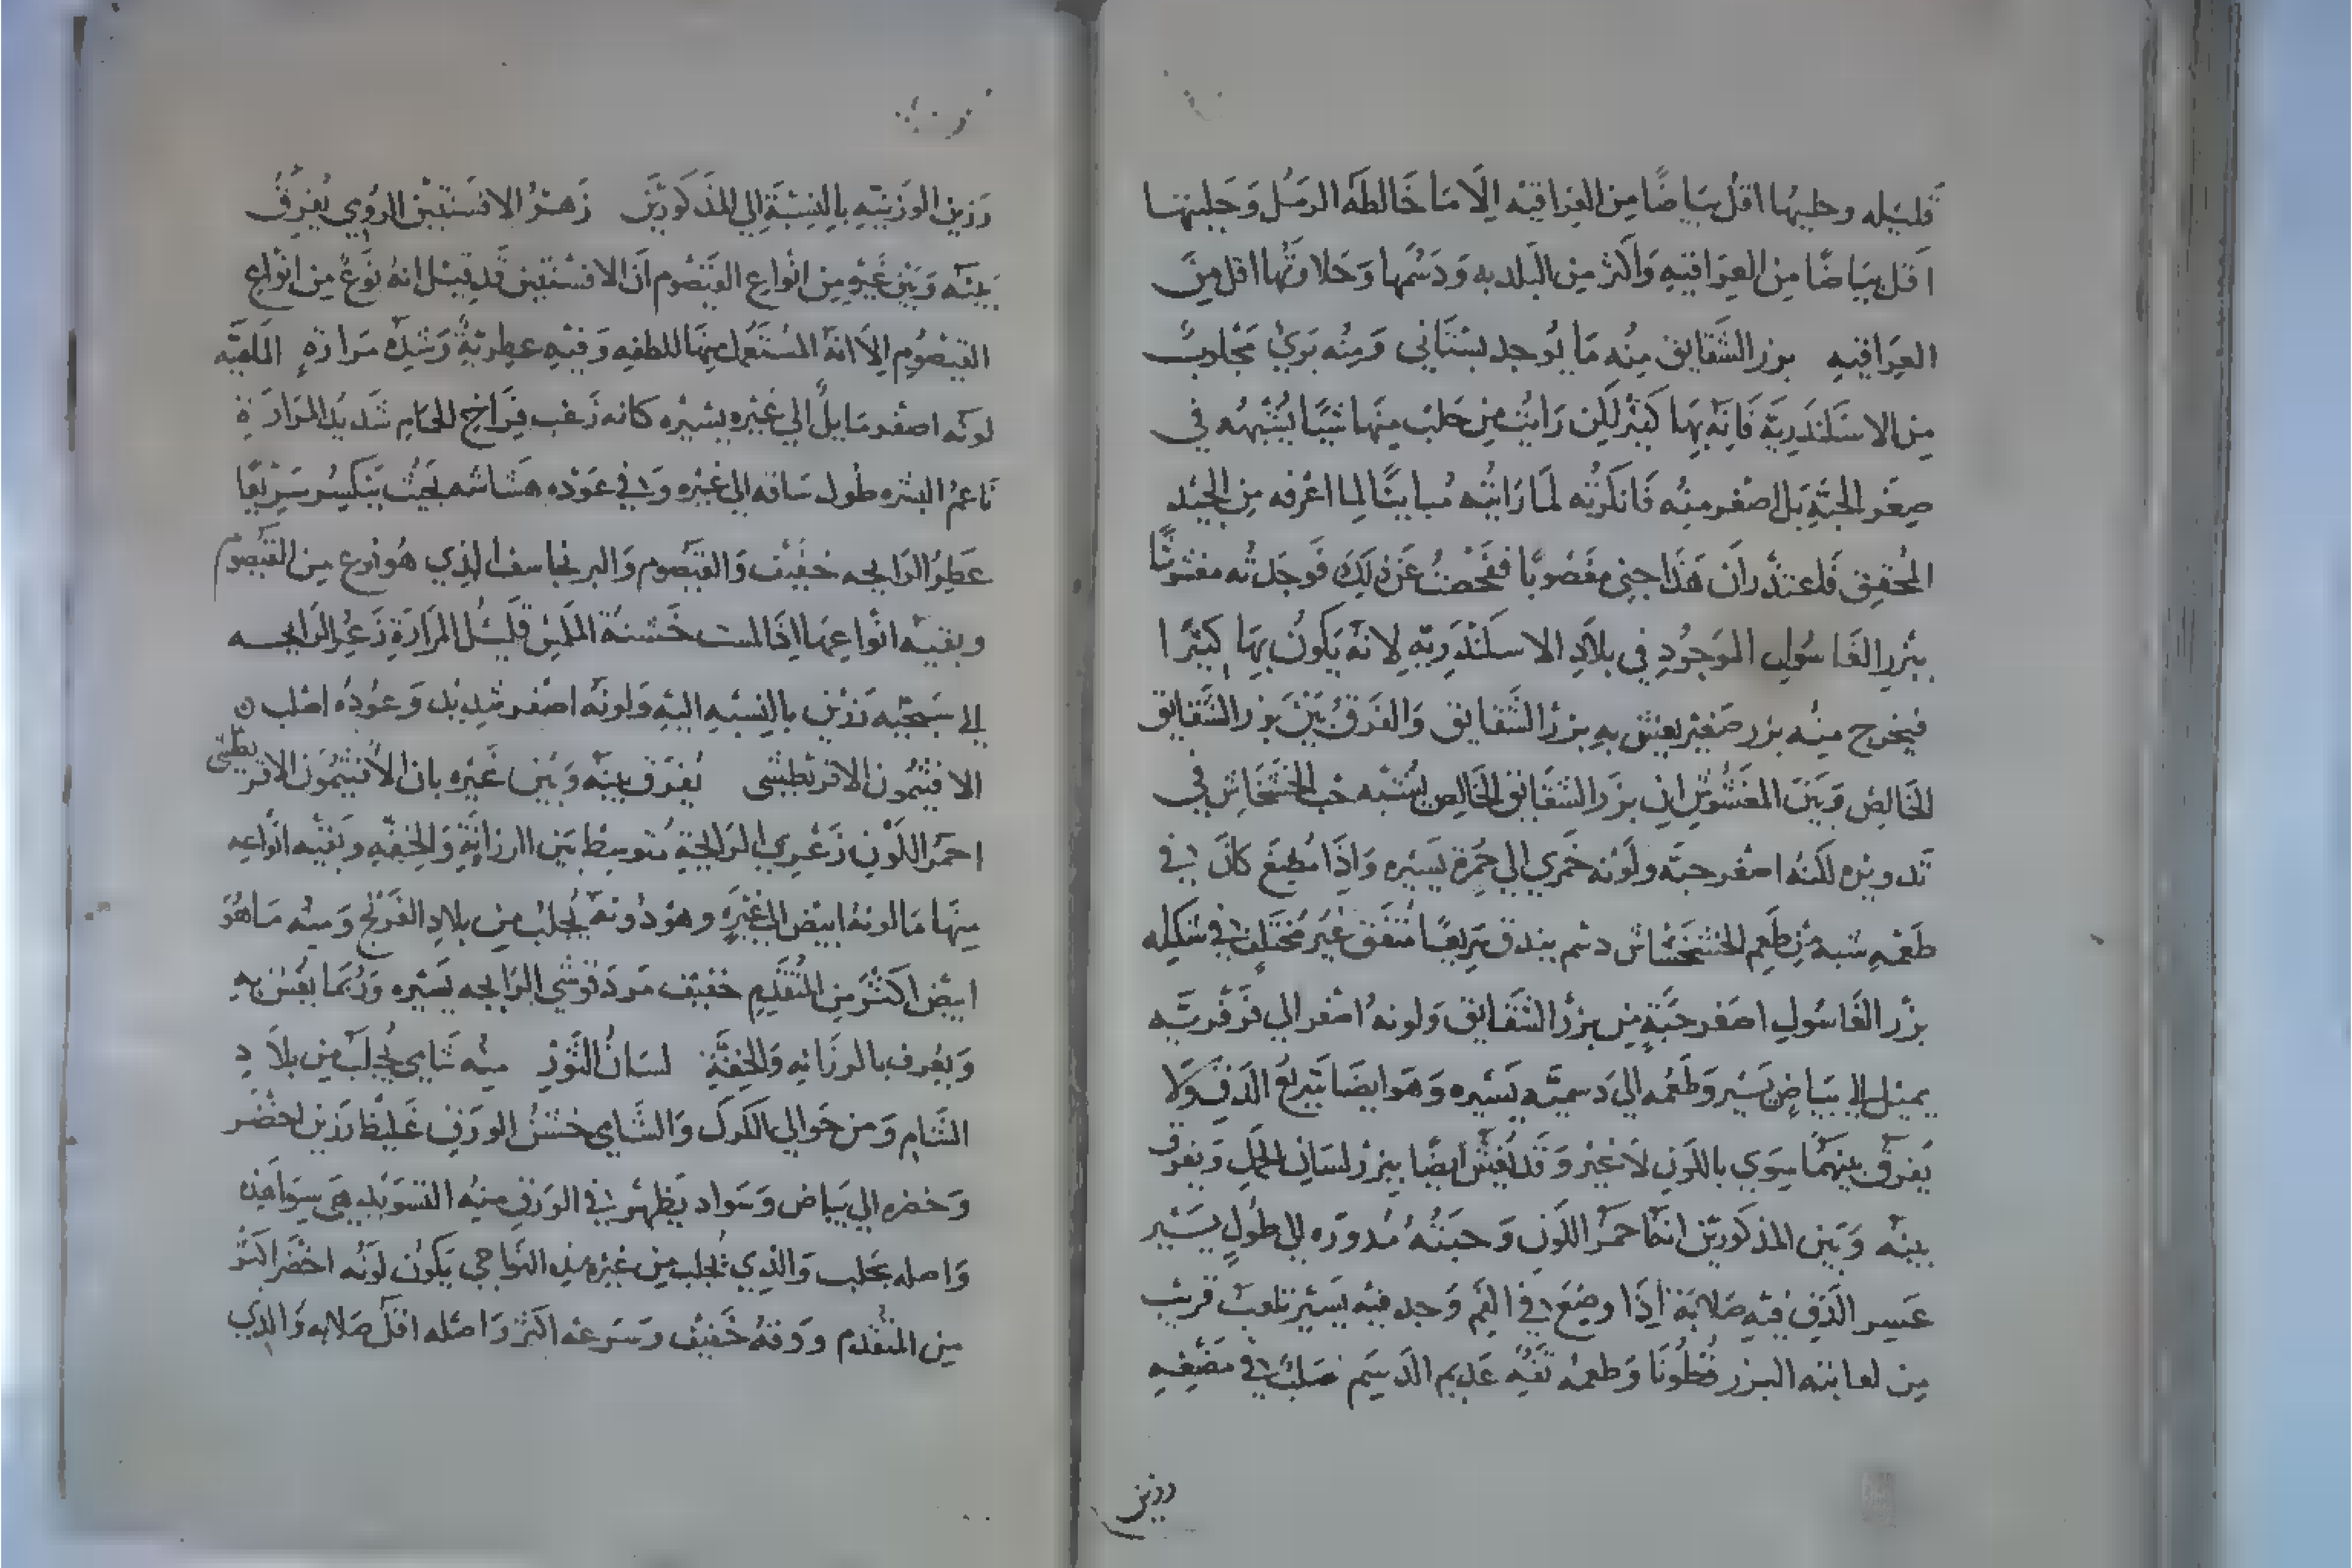 قليله وحليها اقل بياضًا من العراقيه الا ما خالطه الرمل وحليتها
اقل بياضًا من العراقيه واكثر من البلديه ودسمها وحلاوتها اقل من
العراقيه بزر الشقايق منه ما يوجد بستاني ومنه بري مجلوب
من الاسكندريه فانه بها كثير لكن رايت من حلب منها شيًا يشبهه في
صغر الحبة بل اصغر منه فانكرته لما رايته مباينًا لما اعرفه من الجيد
المحقق فاعتذر ان هذا جني مغصوبا ففحصت عن ذلك فوجدته مغشوشًا
ببزر الغاسول الموجود في بلاد الاسكندريه لانه يكون بها كثيرا
فيخرج منه بزر صغير يغش به بزر الشقايق والفرق بين بزر الشقايق
الخالص وبين المغشوش ان بزر الشقايق الخالص يشبه حب الخشخاش في
تدويره لكنه اصغر حبه ولونه خمري الي حمرة يسيره واذا مضغ كان في
طعمه شبه من طعم الخشخاش دسم يندق سريعًا متفق غير مختلف في شكله
بزر الغاسول اصغر حبة من بزر الشقايق ولونه اصفر الي فرفريه
يميل الي بياض يسير وطعمه الي دسميه يسيره وهو ايضا سريع الدق ولا
يفرق بينهما سوي باللون لا غير وقد يغش ايضًا ببزر لسان الحمل ويفرق
بينه وبين المذكورين انه احمر اللون وحبته مدوره الي طول يسير
عسر الدق فيه صلابة اذا وضع في الفم وجد فيه يسير تلعب قريب
من لعابيه البزر قطونا وطعمه تفه عديم الدسم صلب في مضغه
رزين
رزين الورنيه بالنسبة الي المذكورين زهر الافسنتين الرومي يفرق
بينه وبين غيره من انواع القيصوم ان الافسنتين قد قيل انه نوع من انواع
القيصوم الا انه المستعمل منها للطفه وفيه عطرية وشده مرارة الملقيه
لونه اصفر مايلً الي غبره يسيره كانه زغب فراخ الحمام شديد المرارة
ناعم البشره طول ساقه الي غبره وفي عوده هشاشه بحيث ينكسر سريعًا
عطر الرايحه خفيف والقيصوم والبرنجاسف الذي هو نوع من القيصوم
وبقيه انواعها اذا لمست خشنة الملمس قليل المرارة زعر الرايحه
الي سبحيه رزين بالنسبه اليه ولونه اصفر شديد وعوده اصلب
الافيثمون الاقريطشي يفرق بينه وبين غيره بان الافيثمون الاقريطشي
احمر اللون زعري الرايحة متوسط بين الرزانة والخفه وبقيه انواعه
منها ما لونه ابيض الي غبره وهو دونه يجلب من بلاد الفرنج ومنه ما هو
ابيض اكثر من المتقدم خفيف مردقوشي الرايحه يسيره وربما يغش به
ويعرف بالرزانه والخفة لسان الثور منه شامي يجلب من بلاد
الشام ومن حوالي الكرك والشامي خشن الورق غليظ رزين اخضر
وخضره الي بياض وسواد يظهر في الورق منه التسويد هي سواهذه
واصله بحلب والذي يجلب من غير هذه النواحي يكون لونه اخضر اكثر
من المتقدم وورقه خفيف وسرعه اكثر واصله اقل صلابه والذي